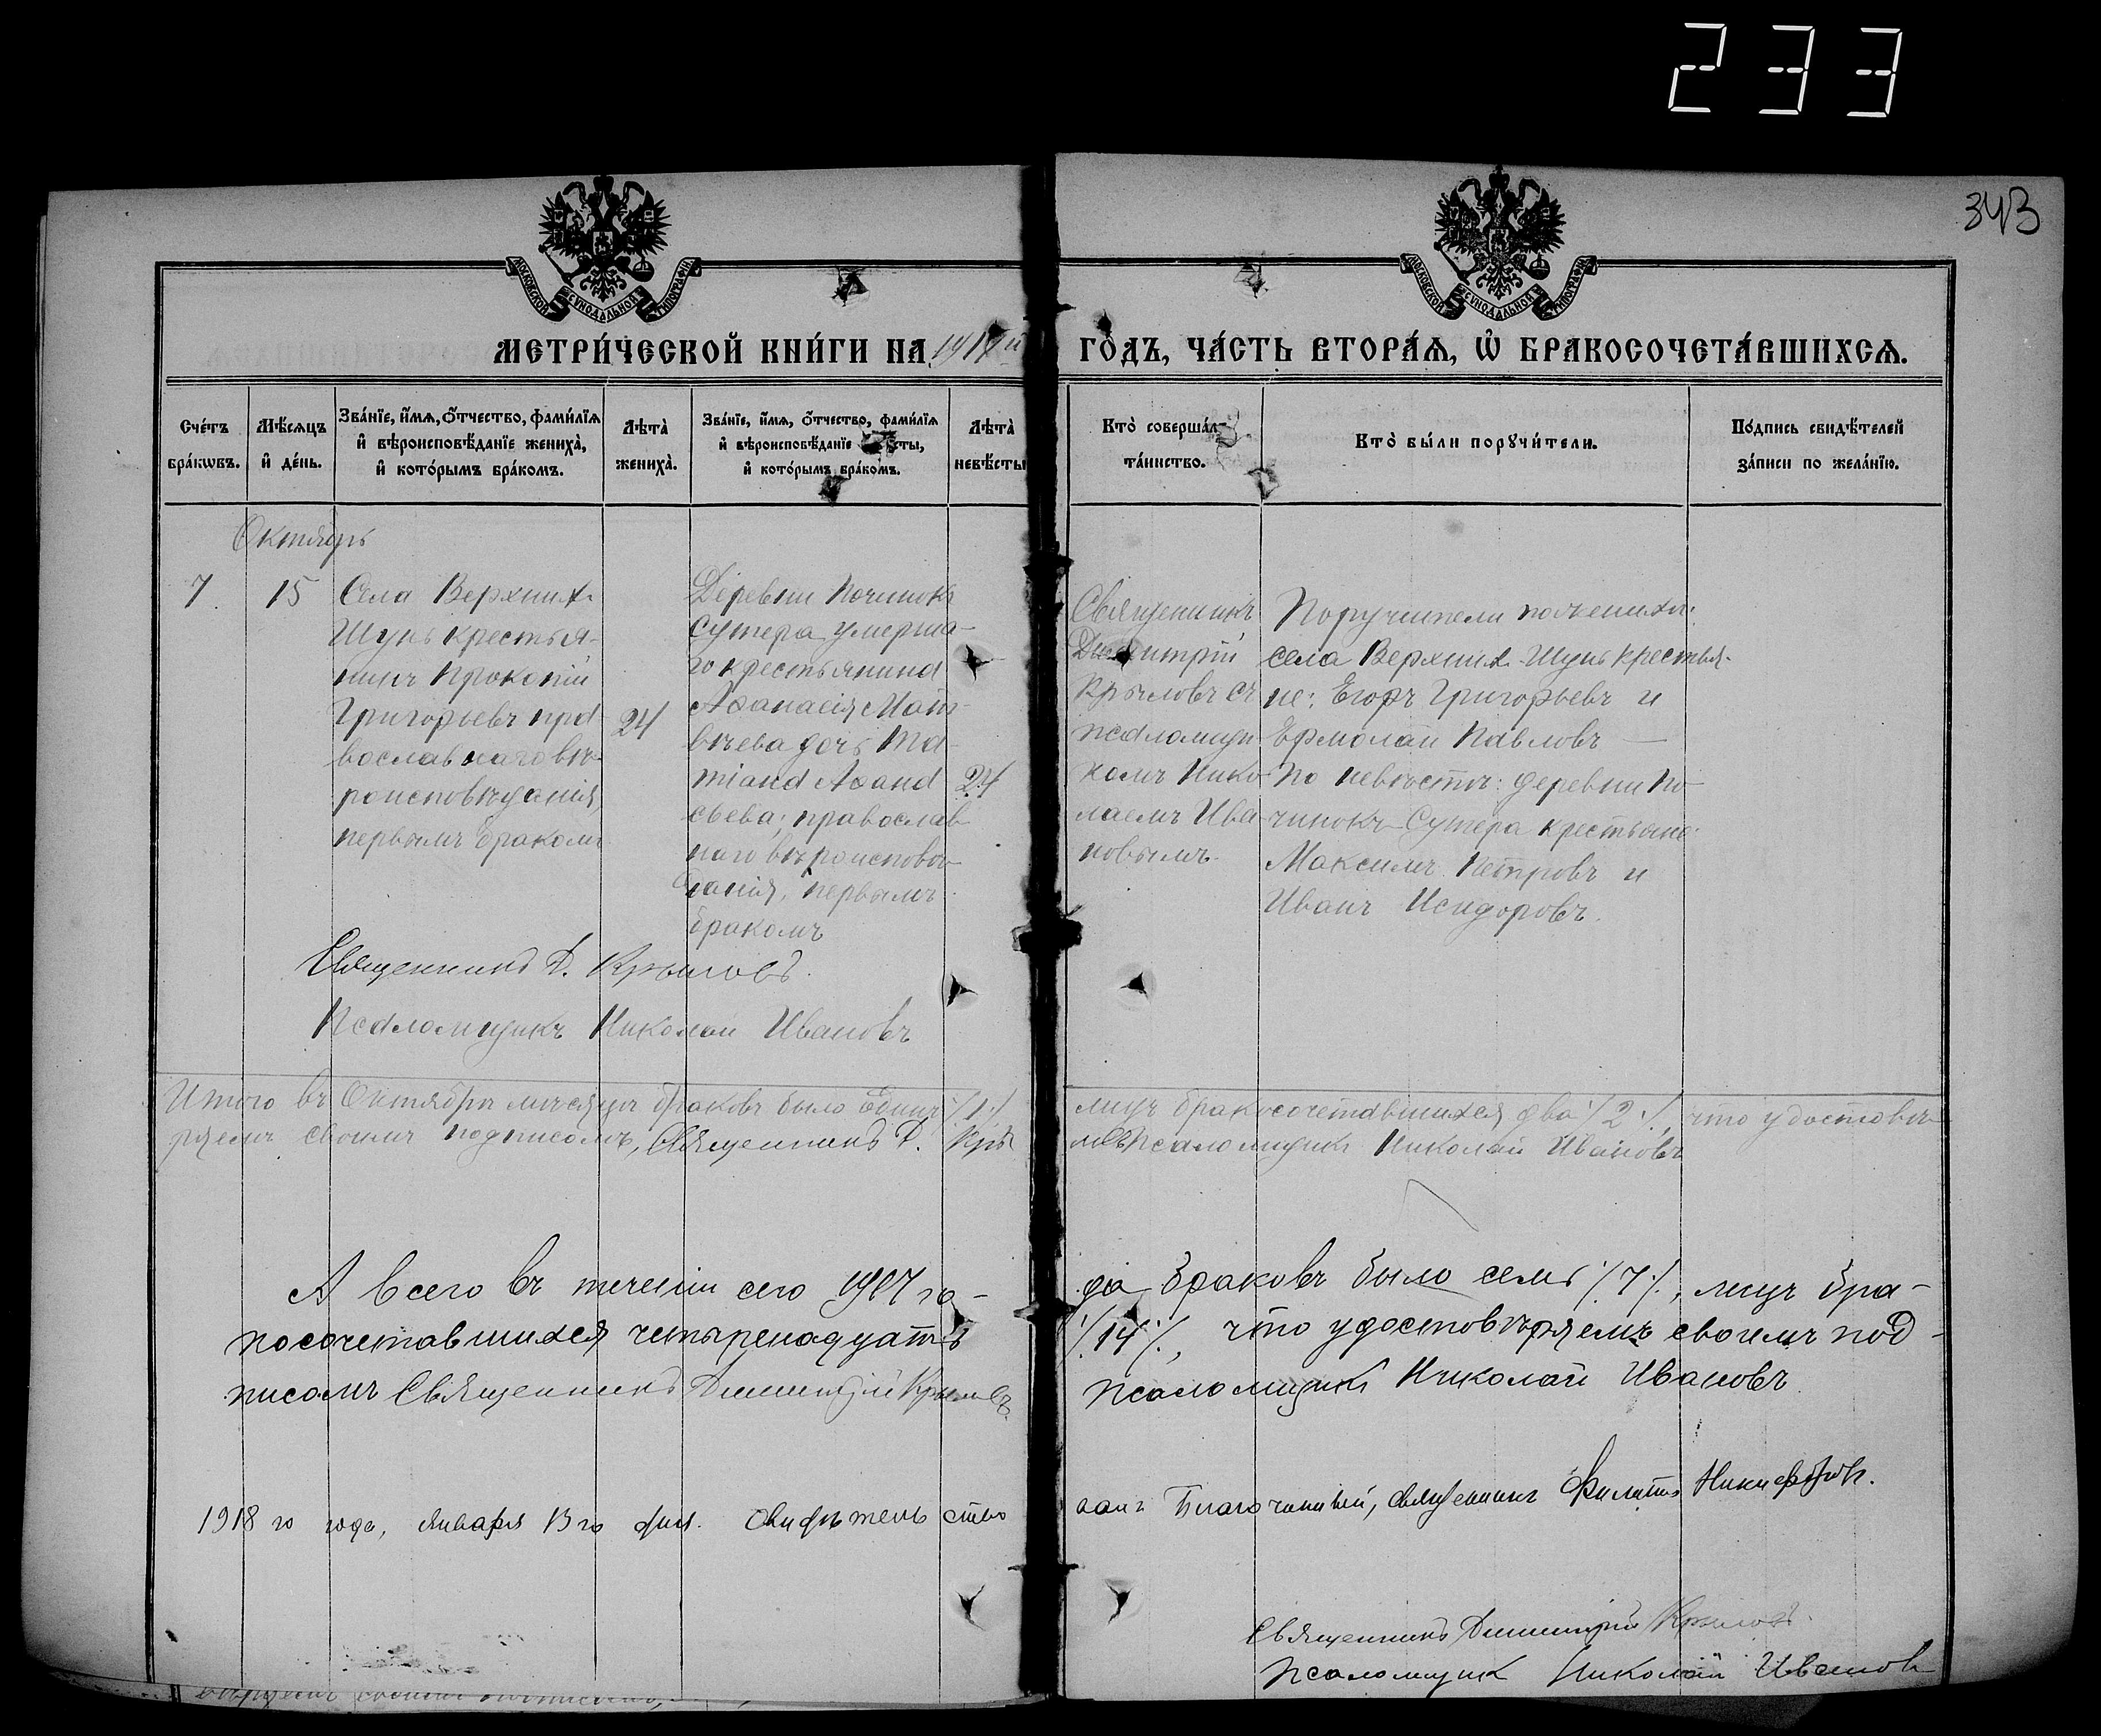 233
343
МОСКОВСКОЙ СѴНОДАЛЬНОЙ ТИПОГРАФІИ
МОСКОВСКОЙ СѴНОДАЛЬНОЙ ТИПОГРАФІИ
МЕТРИ́ЧЕСКОЙ КНИ́ГИ НА 1917й ГО́ДЪ, ЧА́СТЬ ВТОРА́Ѧ, Ѡ҆ БРАКОСОЧЕТА́ВШИХСѦ.
Сче́тъ бра́кѡвъ.
Мѣ́сѧцъ и҆ де́нь.
Зва́нїе, и҆́мѧ, ѻ҆́тчество, фами́лїѧ и҆ вѣроисповѣ́данїе жениха̀, и҆ кото́рымъ бра́комъ.
Лѣта̀ жениха̀.
Зва́нїе, и҆́мѧ, ѻ҆́тчество, фами́лїѧ и҆ вѣроисповѣ́данїе сты, и҆ кото́рымъ бра́комъ.
Лѣта̀ невѣ́сты
Кто̀ соверша́лъ та́инство.
Кто̀ бы́ли порꙋчи́тели.
По́дпись свидѣ́телей за́писи по жела́нїю.
Октябрь
7.
15
Села Верхнихъ
Шунь крестья-
нинъ Прокопій
Григорьевъ пра-
вославнаго вѣ-
роисповѣданія,
первымъ бракомъ
24
Деревни Починокъ
Сутера умерша-
го крестьянина
Аѳанасія Мат-
вѣева дочь Та-
тіана Аѳана
сьева; православ
наго вѣроисповѣ-
данія, первымъ
бракомъ
24
Священникъ
Димитрій
Крыловъ съ
псаломщи-
комъ Нико-
лаемъ Ива-
новымъ.
Поручители по женихѣ:
села Верхнихъ-Шунь крестья-
не: Егоръ Григорьевъ и
Ермолай Павловъ —
По невѣстѣ: деревни По-
чинокъ-Сутера крестьяне:
Максимъ Петровъ и
Иванъ Исидоровъ.
Священникъ Д. Крыловъ.
Псаломщикъ Николай Ивановъ
Итого въ Октябрѣ мѣсяцѣ браковъ было Единъ /1/ лицъ бракосочетавшихся два /2/, что удостовѣ-
ряемъ своимъ подписомъ, Священникъ Д. Крыловъ Псаломщикъ Николай Ивановъ
А всего въ теченіи сего 1917 го-да браковъ было семь /7/, лицъ бра-
косочетавшихся четыренадцать /14/, что удостовѣряемъ своимъ под-
писомъ Священникъ Димитрій Крыловъ Псаломщикъ Николай Ивановъ
1918 го года, января 13 го дня. Свидѣтельство валъ Благочинный, священникъ Филиппъ Никифоровъ.
Священникъ Димитрій Крыловъ.
Псаломщикъ Николай Ивановъ